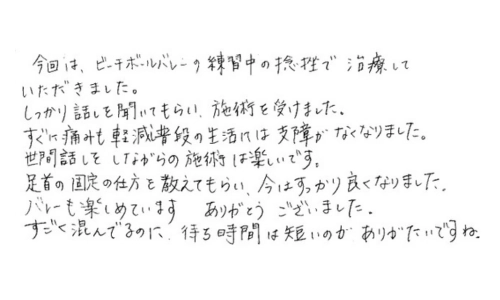 今回は、ビーチボールバレーの練習中の捻挫で治療して
いただきました。
しっかり話しを聞いてもらい、施術を受けました。
すぐに痛みも軽減し普段の生活には支障がなくなりました。
世間話しをしながらの施術は楽しいです。
足首の固定の仕方を教えてもらい、今はすっかり良くなりました。
バレーも楽しめています ありがとうございました。
すごく混んでるのに、待ち時間は短いのがありがたいですね。